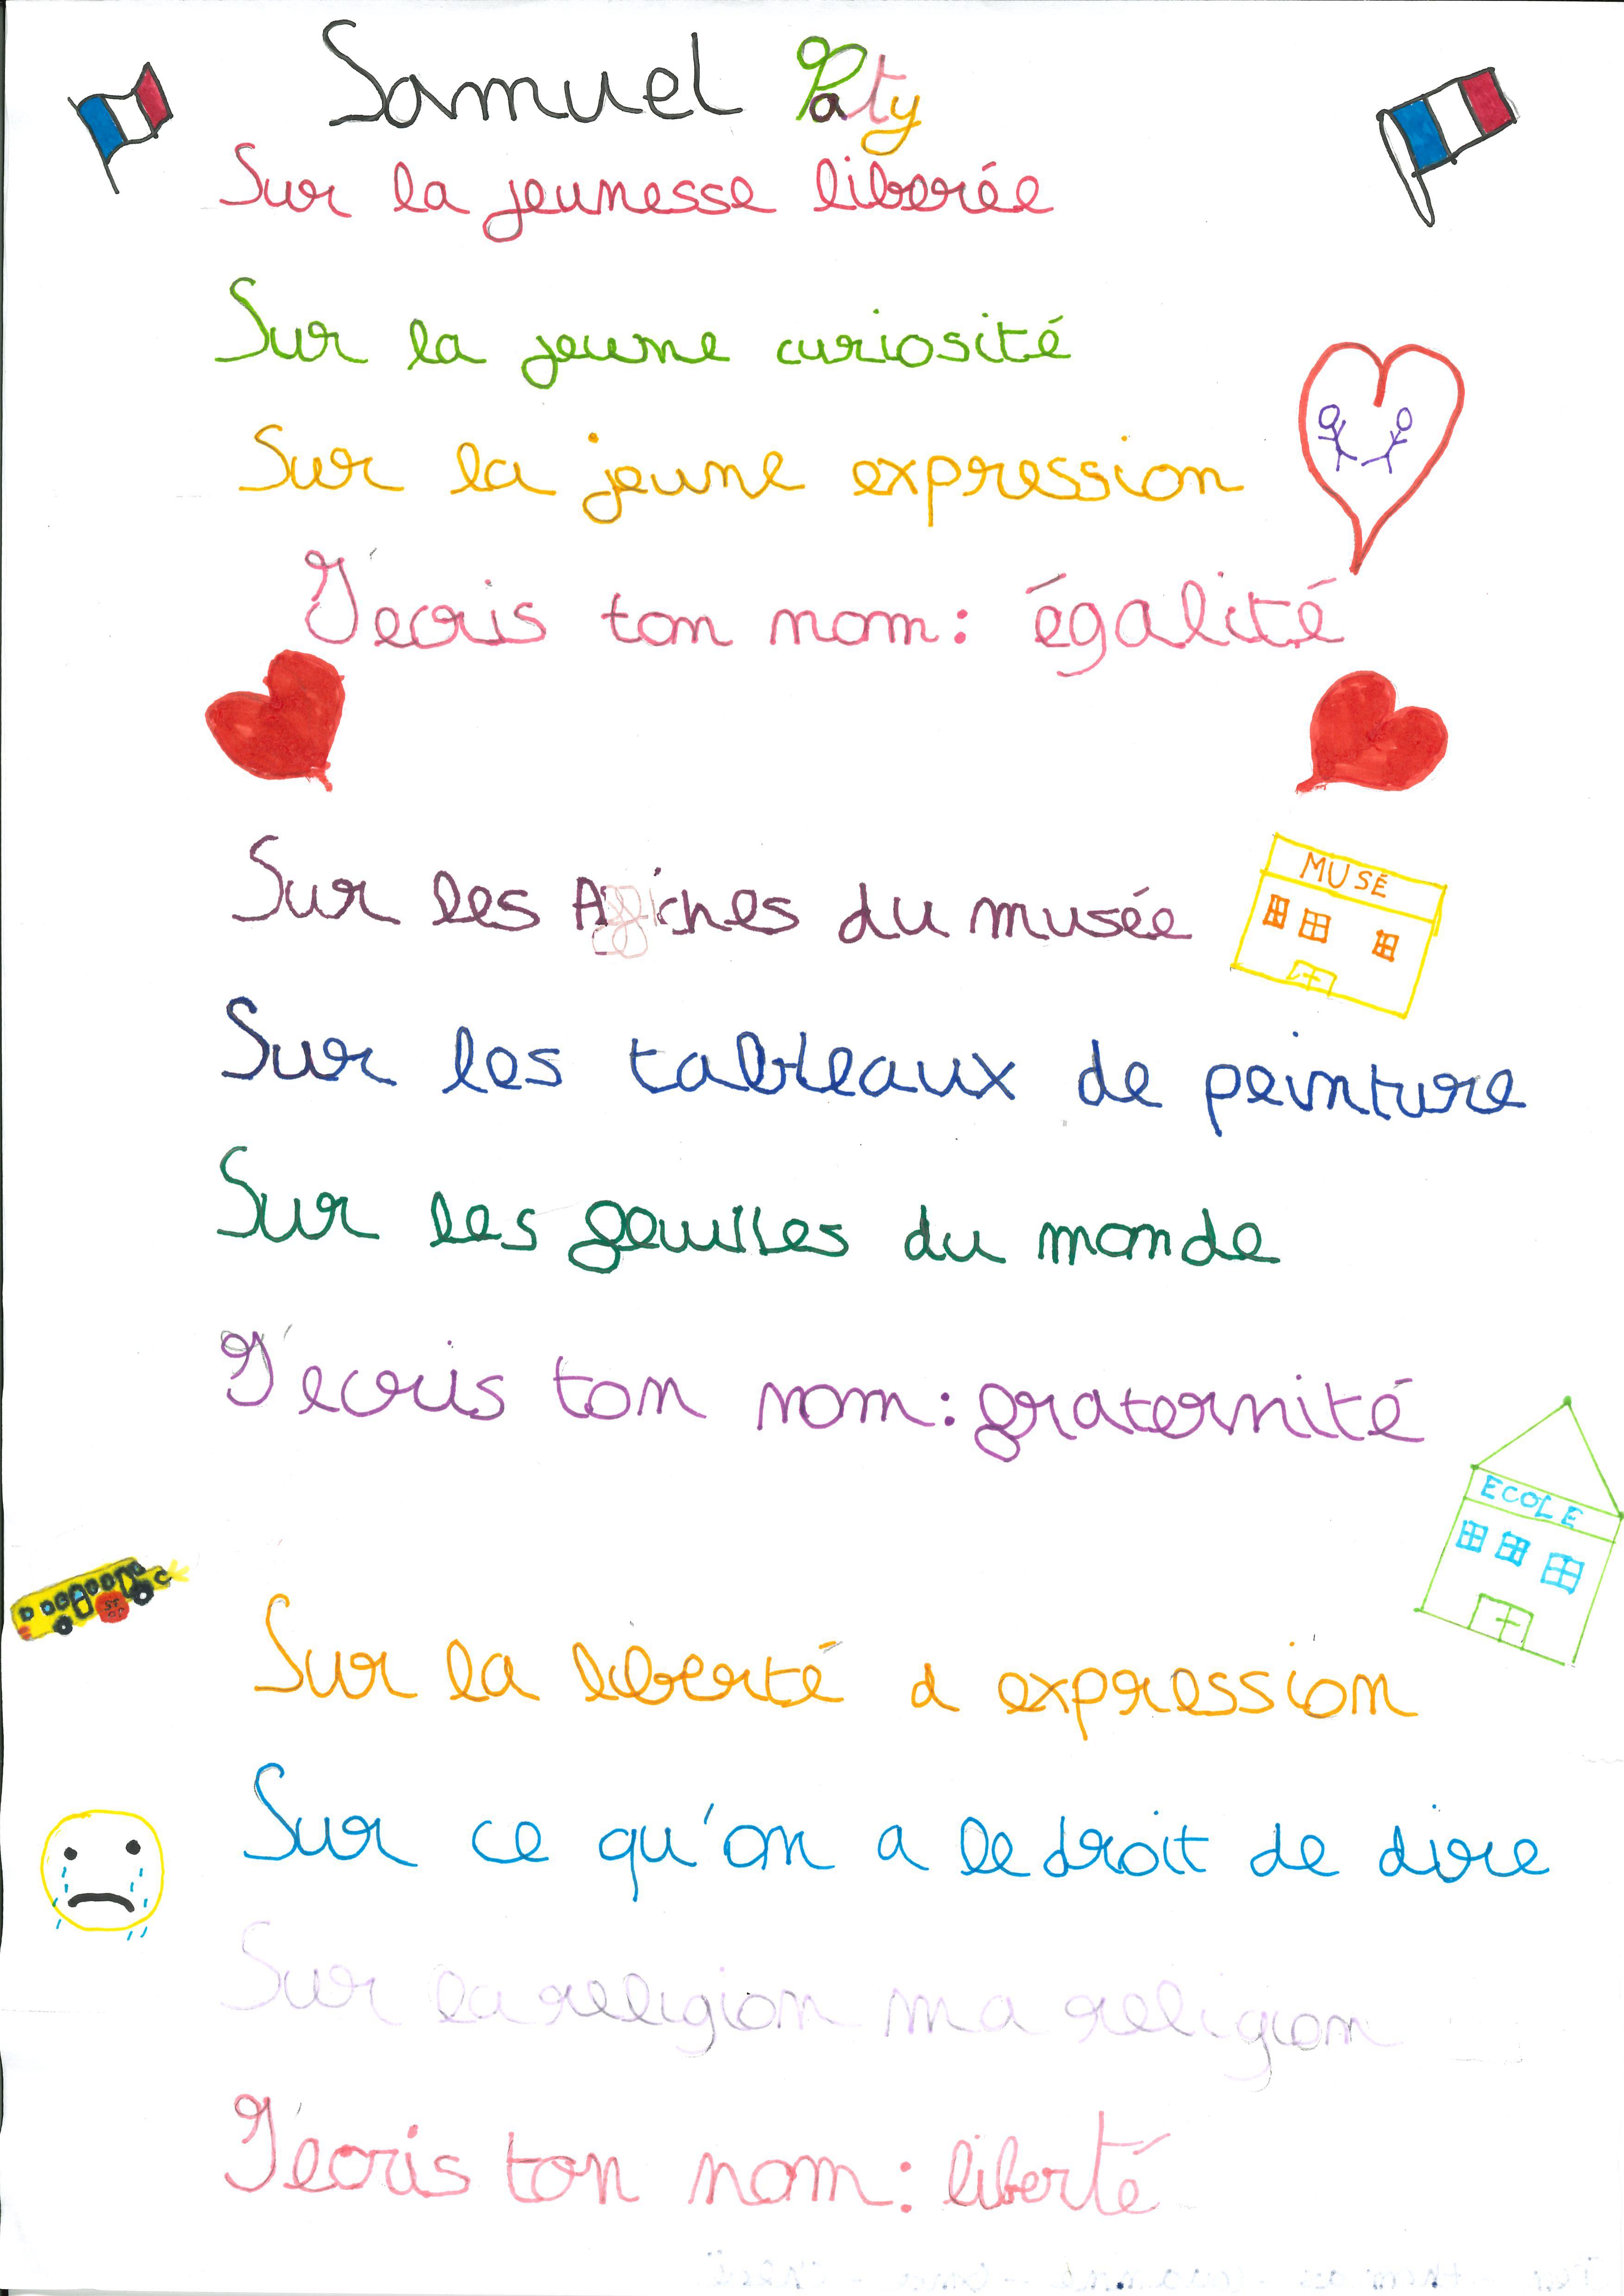 Samuel Paty
Sur la jeunesse liberée
Sur la jeune curiosité
Sur la jeune expression
J'ecris ton nom : égalité
Sur les Affiches du musée
MUSÉ
Sur les tableaux de peinture
Sur les feuilles du monde
J'ecris ton nom : fraternité
ECOLE
STOP
Sur la liberté d expression
Sur ce qu'on a le droit de dire
Sur la religion ma religion
J'ecris ton nom : liberté